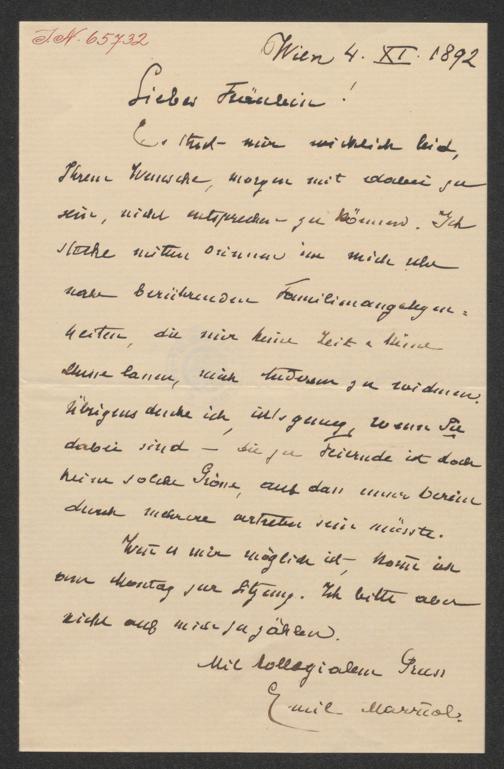 I.N. 65732
Wien 4. XI. 1892
Liebes Fräulein!
Es thut mir wirklich leid,
Ihrem Wunsche, morgen mit dabei zu
sein, nicht entsprechen zu können. Ich
stecke mitten drinnen in mich sehr
nahe berührenden Familienangelegen=
heiten, die mir keine Zeit u keine
Musse lassen, mich Anderem zu widmen.
Übrigens denke ich, ist's genug, wenn Sie
dabei sind – die zu Feiernde ist doch
keine solche Grösse, auf dass unser Verein
durch mehrere vertreten sein müsste.
Wenn es mir möglich ist, komme ich
am Montag zur Sitzung. Ich bitte aber
nicht auf mich zu zählen.
Mit kollegialem Gruss
Emil Marriot.